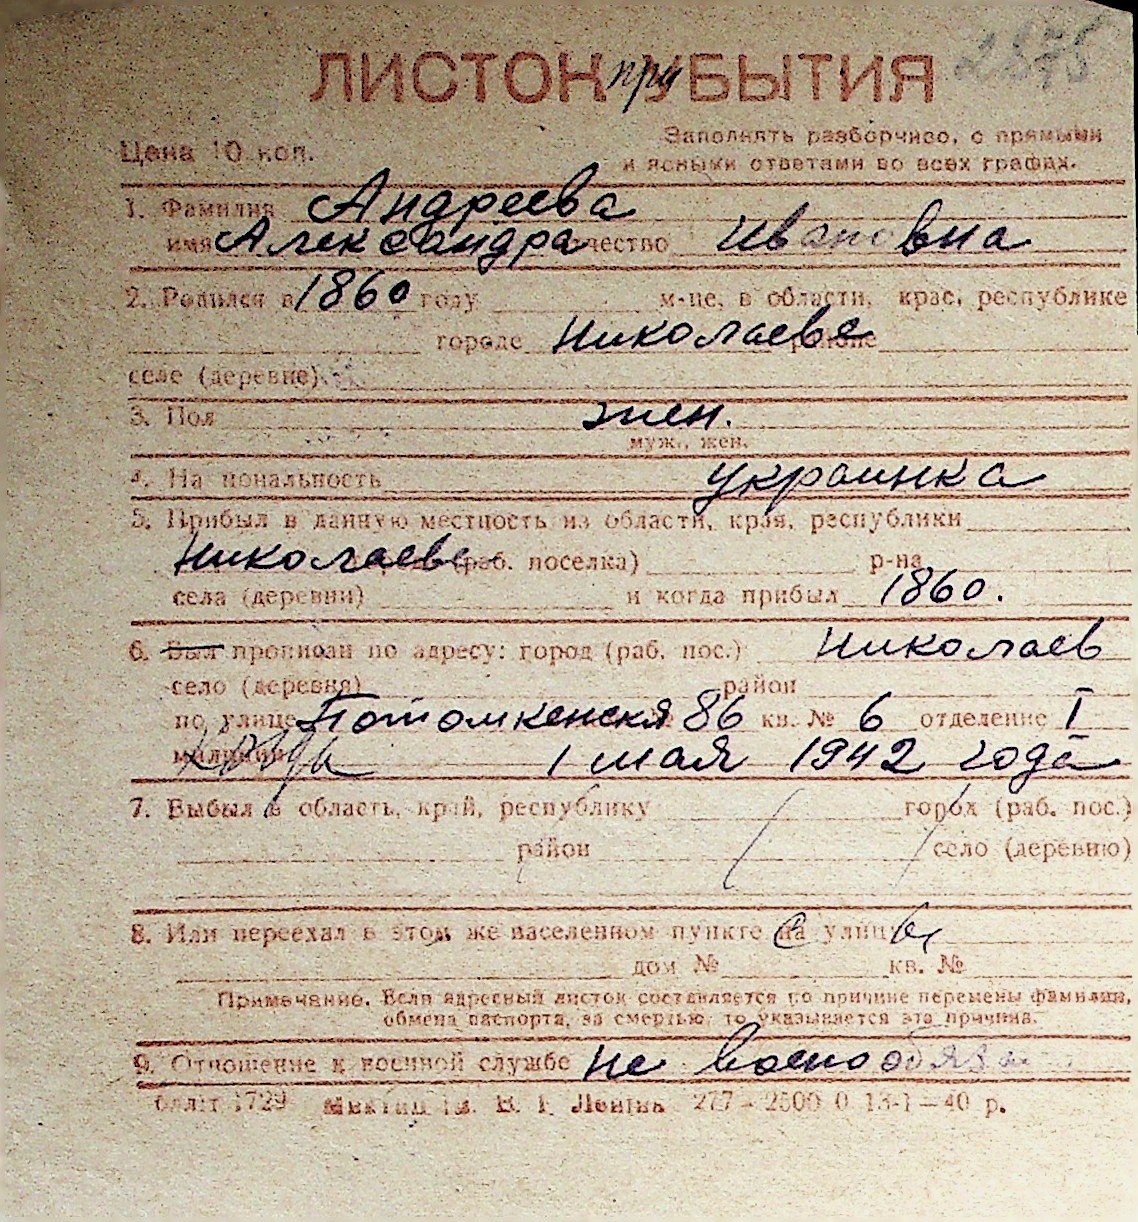 2875
ЛИСТОК при УБЫТИЯ
Цена 10 коп.
Заполнять разборчиво, с прямыми
и ясными ответами во всех графах.
1. Фамилия Андреева
имя Александра отчество Ивановна
2. Родился в 1860 году м-це, в области, крас, республике
городе Николаеве районе
селе (деревне)
3. Пол жен.
муж., жен.
4. Национальность украинка
5. Прибыл в данную местность из области, края, республики
Николаева (раб. поселка) р-на
села (деревни) и когда прибыл 1860.
6. Был прописан по адресу: город (раб. пос.) Николаев
село (деревня) район
по улице Потомкенскя 86 кв. № 6 отделение I
милиции когда 1 мая 1942 года
7. Выбыл в область, край, республику город (раб. пос.)
район село (деревню)
8. Или переехал в этом же населенном пункте на улицу
дом № кв. №
Примечание. Если адресный листок составляется по причине перемены фамилии,
обмена паспорта, за смертью, то указывается эта причина.
9. Отношение к военной службе не военообязан
1729 ім. В. І. Леніна 277 – 2500 0 13-1 – 40 р.